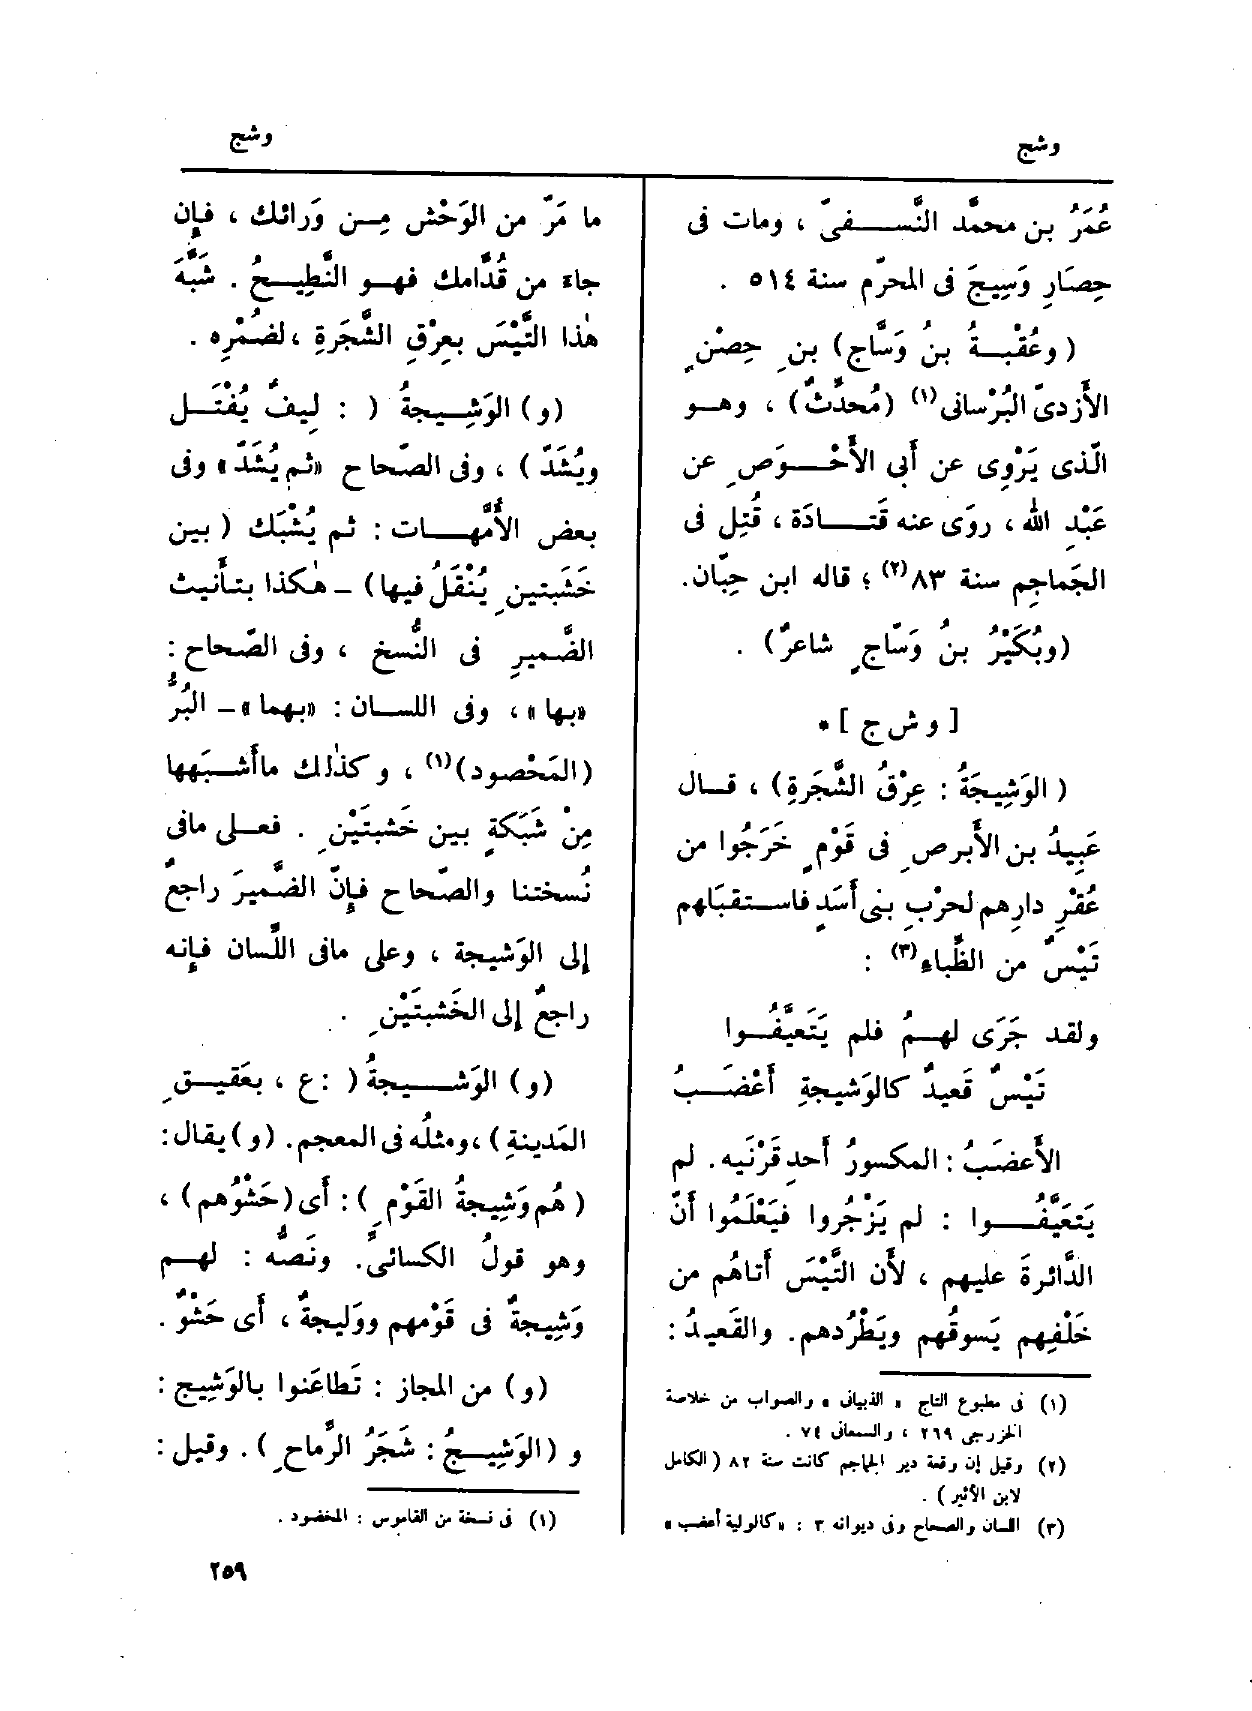 وشج
وشج
عُمَرُ بن محمَّد النَّسفىّ ، ومات فى
حِصَارِ وَسِيجَ فى المحرّم سنة ٥١٤ .
(وعُقْبةُ بنُ وَسَّاجِ) بنِ حِصْنٍ
الأَزدىّ البُرْسانى(١) (مُحدِّثٌ) ، وهو
الّذى يَرْوِى عن أَبى الأَحْوَصِ عن
عَبْدِ الله ، روَى عنه قَتادَة ، قُتِل فى
الجَماجِم سنة ٨٣(٢) ؛ قاله ابن حِبّان.
(وبُكَيْرُ بنُ وَسّاجٍ شاعرٌ) .
[ و ش ج ] *
(الوَشِيجَةُ : عِرْقُ الشَّجَرةِ) ، قال
عَبِيدُ بن الأَبرصِ فى قَوْمٍ خَرَجُوا من
عُقْرِ دارِهم لحرْبِ بنى أَسَدٍ فاستقبَلهم
تَيْسٌ من الظِّباءِ(٣) :
ولقد جَرَى لهمُ فلم يَتَعيَّفُوا
تَيْسٌ قَعيدٌ كالوَشيجةِ أَعْضَبُ
الأَعضَبُ : المكسورُ أَحدِ قَرْنَيه. لم
يَتعَيَّفُوا : لم يَزْجُروا فيَعْلَمُوا أَنّ
الدَّائرةَ عليهم ، لأَن التَّيْسَ أَتاهُم من
خَلْفِهم يَسوقُهم ويَطْرُدهم. والقَعيدُ :
(١) فى مطبوع التاج « الذبيانى » والصواب من خلاصة
الخزرجى ٢٦٩ ، والسمعانى ٧٤ .
(٢) وقيل إن وقعة دير الجماجم كانت سنة ٨٢ ( الكامل
لابن الأثير ) .
(٣) اللسان والصحاح وفى ديوانه ٣ : «كالولية أعضب »
ما مَرّ من الوَحْش مِن وَرائك ، فإِن
جاءَ من قُدَّامك فهو النَّطِيحُ . شَبَّهَ
هٰذا التَّيْسَ بعِرْقِ الشَّجَرةِ ،لضُمْرِه .
(و) الوَشِيجةُ ( : لِيفٌ يُفْتَل
ويُشَدّ ) ، وفى الصّحاح «ثم يُشَدّ» وفى
بعض الأُمَّهات : ثم يُشْبَك ( بين
خَشَبتينِ يُنْقَلُ فيها) – هٰكذا بتأْنيث
الضَّميرِ فى النُّسخ ، وفى الصّحاح :
«بها » ، وفى اللسان : «بهما »– البُرُّ
(المَحْصود)(١) ، وكذٰلك ماأَشبَهها
مِنْ شَبَكةٍ بين خَشبتَيْنِ . فعلى مافى
نُسختنا والصّحاح فإِنّ الضَّميرَ راجعٌ
إِلى الوَشيجة ، وعلى مافى اللَّسان فإِنه
راجعٌ إِلى الخَشبتَيْنِ .
(و) الوَشيجةُ ( :ع ، بعَقيقِ
المَدينةِ) ،ومثلُه فى المعجم. (و) يقال :
( هُم وَشِيجةُ القَوْمِ ) : أَى (حَشْوُهم) ،
وهو قولُ الكسائىِّ. ونَصُّه : لهم
وَشِيجةٌ فى قَوْمهم ووَليجةٌ ، أَى حَشْوٌ .
(و) من المجاز : تَطاعَنوا بالوَشِيجِ :
و (الوَشِيجُ : شَجَرُ الرِّماحِ ). وقيل :
(١) فى نسخة من القاموس : المخضود .
٢٥٩